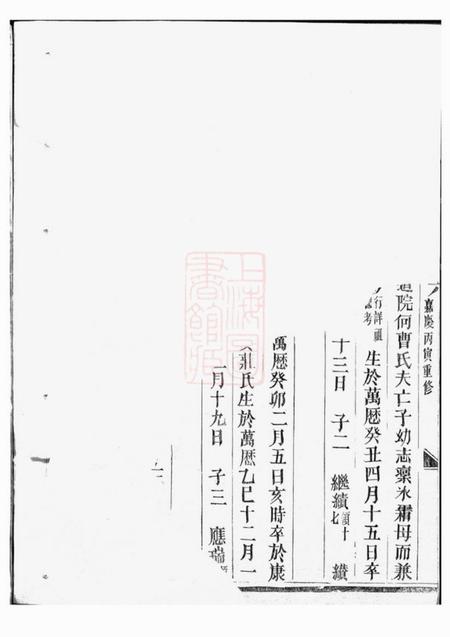 嘉慶丙寅重修
院何曹氏夫亡子幼志稟冰霜母而兼
行詳祖
考
生於萬曆癸丑四月十五日卒
十三日 子二 繼績 續
萬曆癸卯二月五日亥時卒於康
氏生於萬曆乙巳十二月一
一月十九日 子三 應瑞
上海圖書館藏